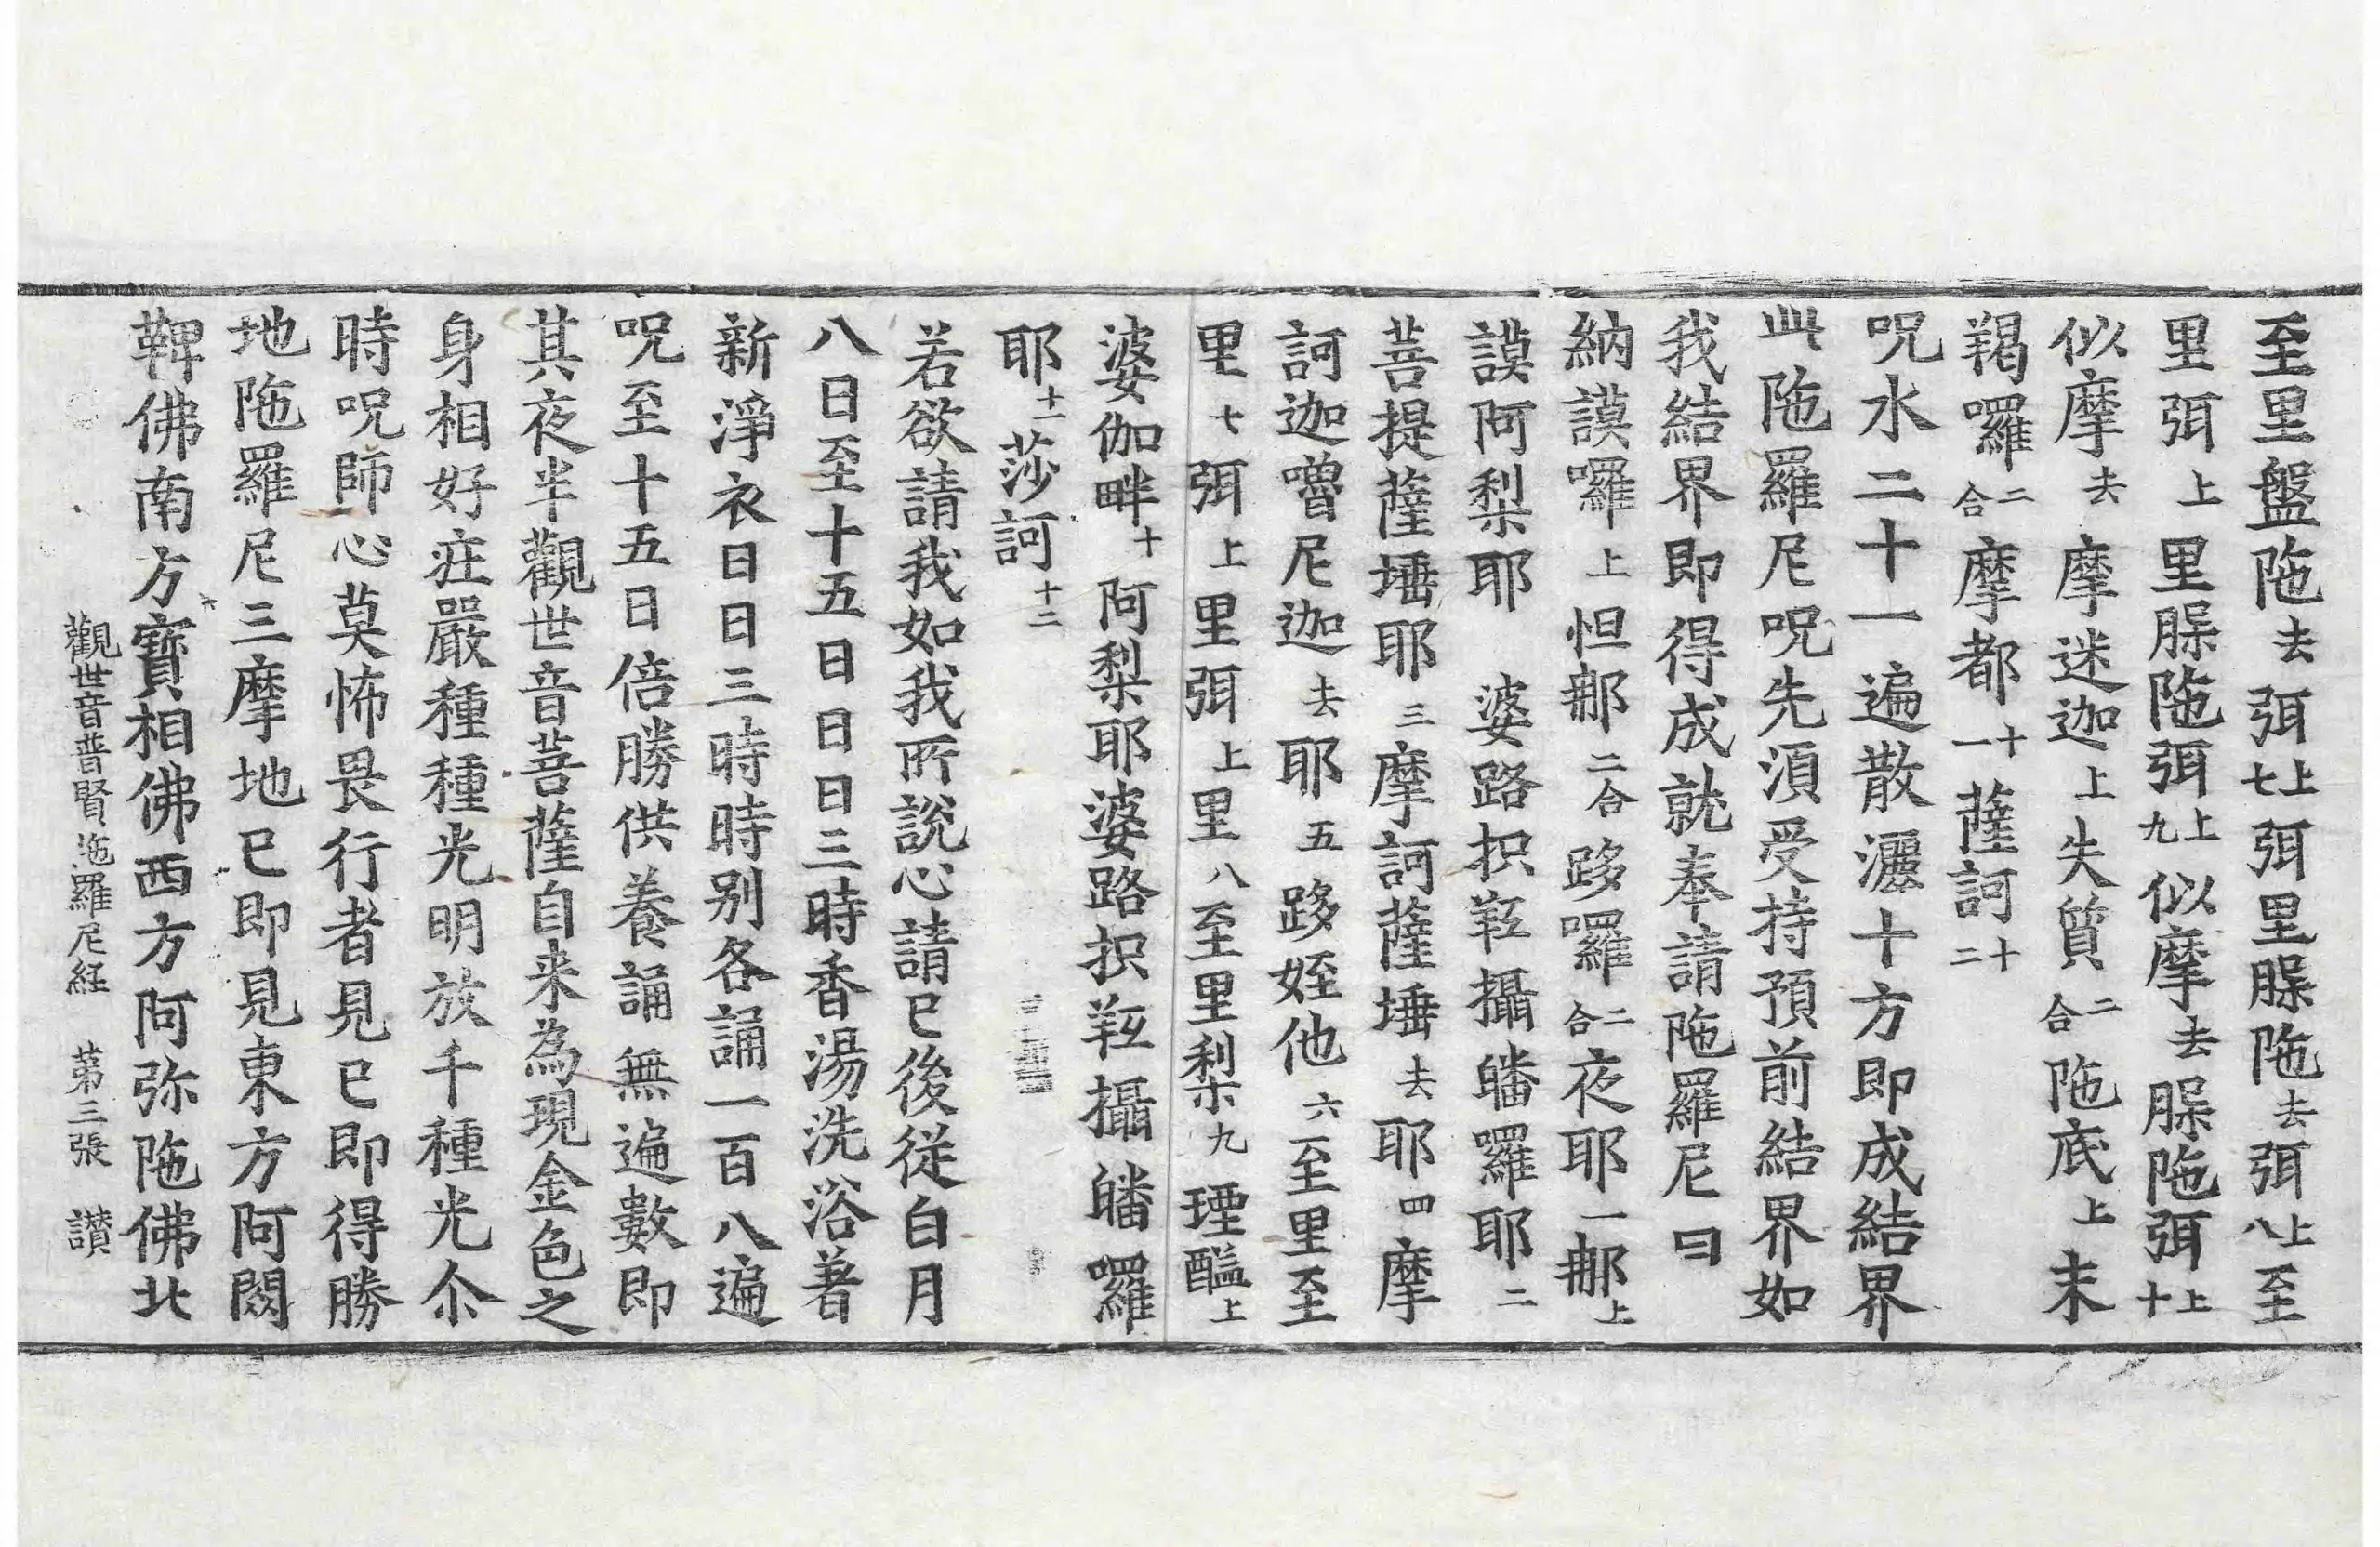 至里盤陁去弭上七弭里脲陁去弭上八至
里弭上里脲陁弭上九似摩去脲陁弭上十
似摩去摩迷迦上失質二合陁底上末
羯囉二合摩都十一薩訶十二
呪水二十一遍散灑十方即成結界
此陁羅尼呪先湏受持預前結界如
我結界即得成就奉請陁羅尼曰
納謨囉上怛郍二合跢囉二合夜耶一郍上
謨阿梨耶婆路抧羝攝皤囉耶二
菩提薩埵耶三摩訶薩埵去耶四摩
訶迦嚕尼迦去耶五跢姪他六至里至
里七弭上里弭上里八至里梨九㻭醯上
婆伽畔十阿梨耶婆路抧羝攝皤囉
耶十一莎訶十二
若欲請我如我所說心請已後從白月
八日至十五日日日三時香湯洗浴著
新淨衣日日三時時別各誦一百八遍
呪至十五日倍勝供養誦無遍數即
其夜半觀世音菩薩自来為現金色之
身相好莊嚴種種光明放千種光尒
時呪師心莫怖畏行者見已即得勝
地陁羅尼三摩地已即見東方阿閦
鞞佛南方寳相佛西方阿弥陁佛北
觀世音普賢陁羅尼經 苐三張 讃